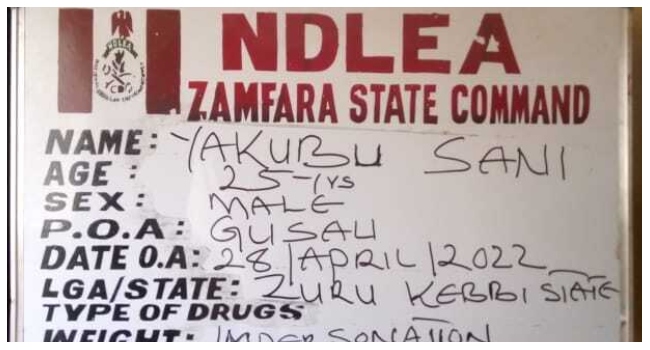 NDLEA
ZAMFARA STATE COMMAND
NAME: YAKUBU SANI
AGE : 25-yrs
SEX : MALE
P.O.A: GUSAU
DATE O.A: 28/APRIL/2022
LGA/STATE: ZURU KEBBI STATE
TYPE OF DRUGS
WEIGHT: IMPERSONATION